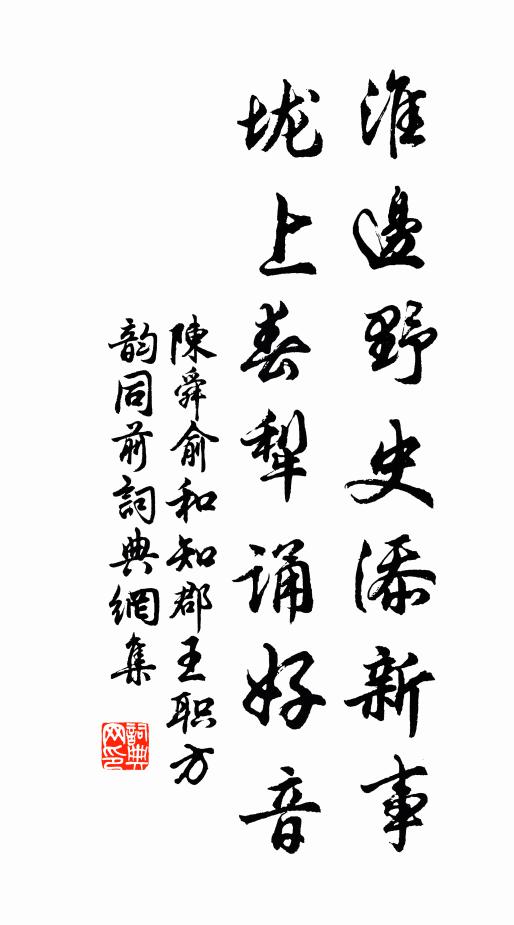 淮邊野史添新事
垅上春犁誦好音
陳舜俞和知郡王职方
韵同前詞典網集
詞典网印